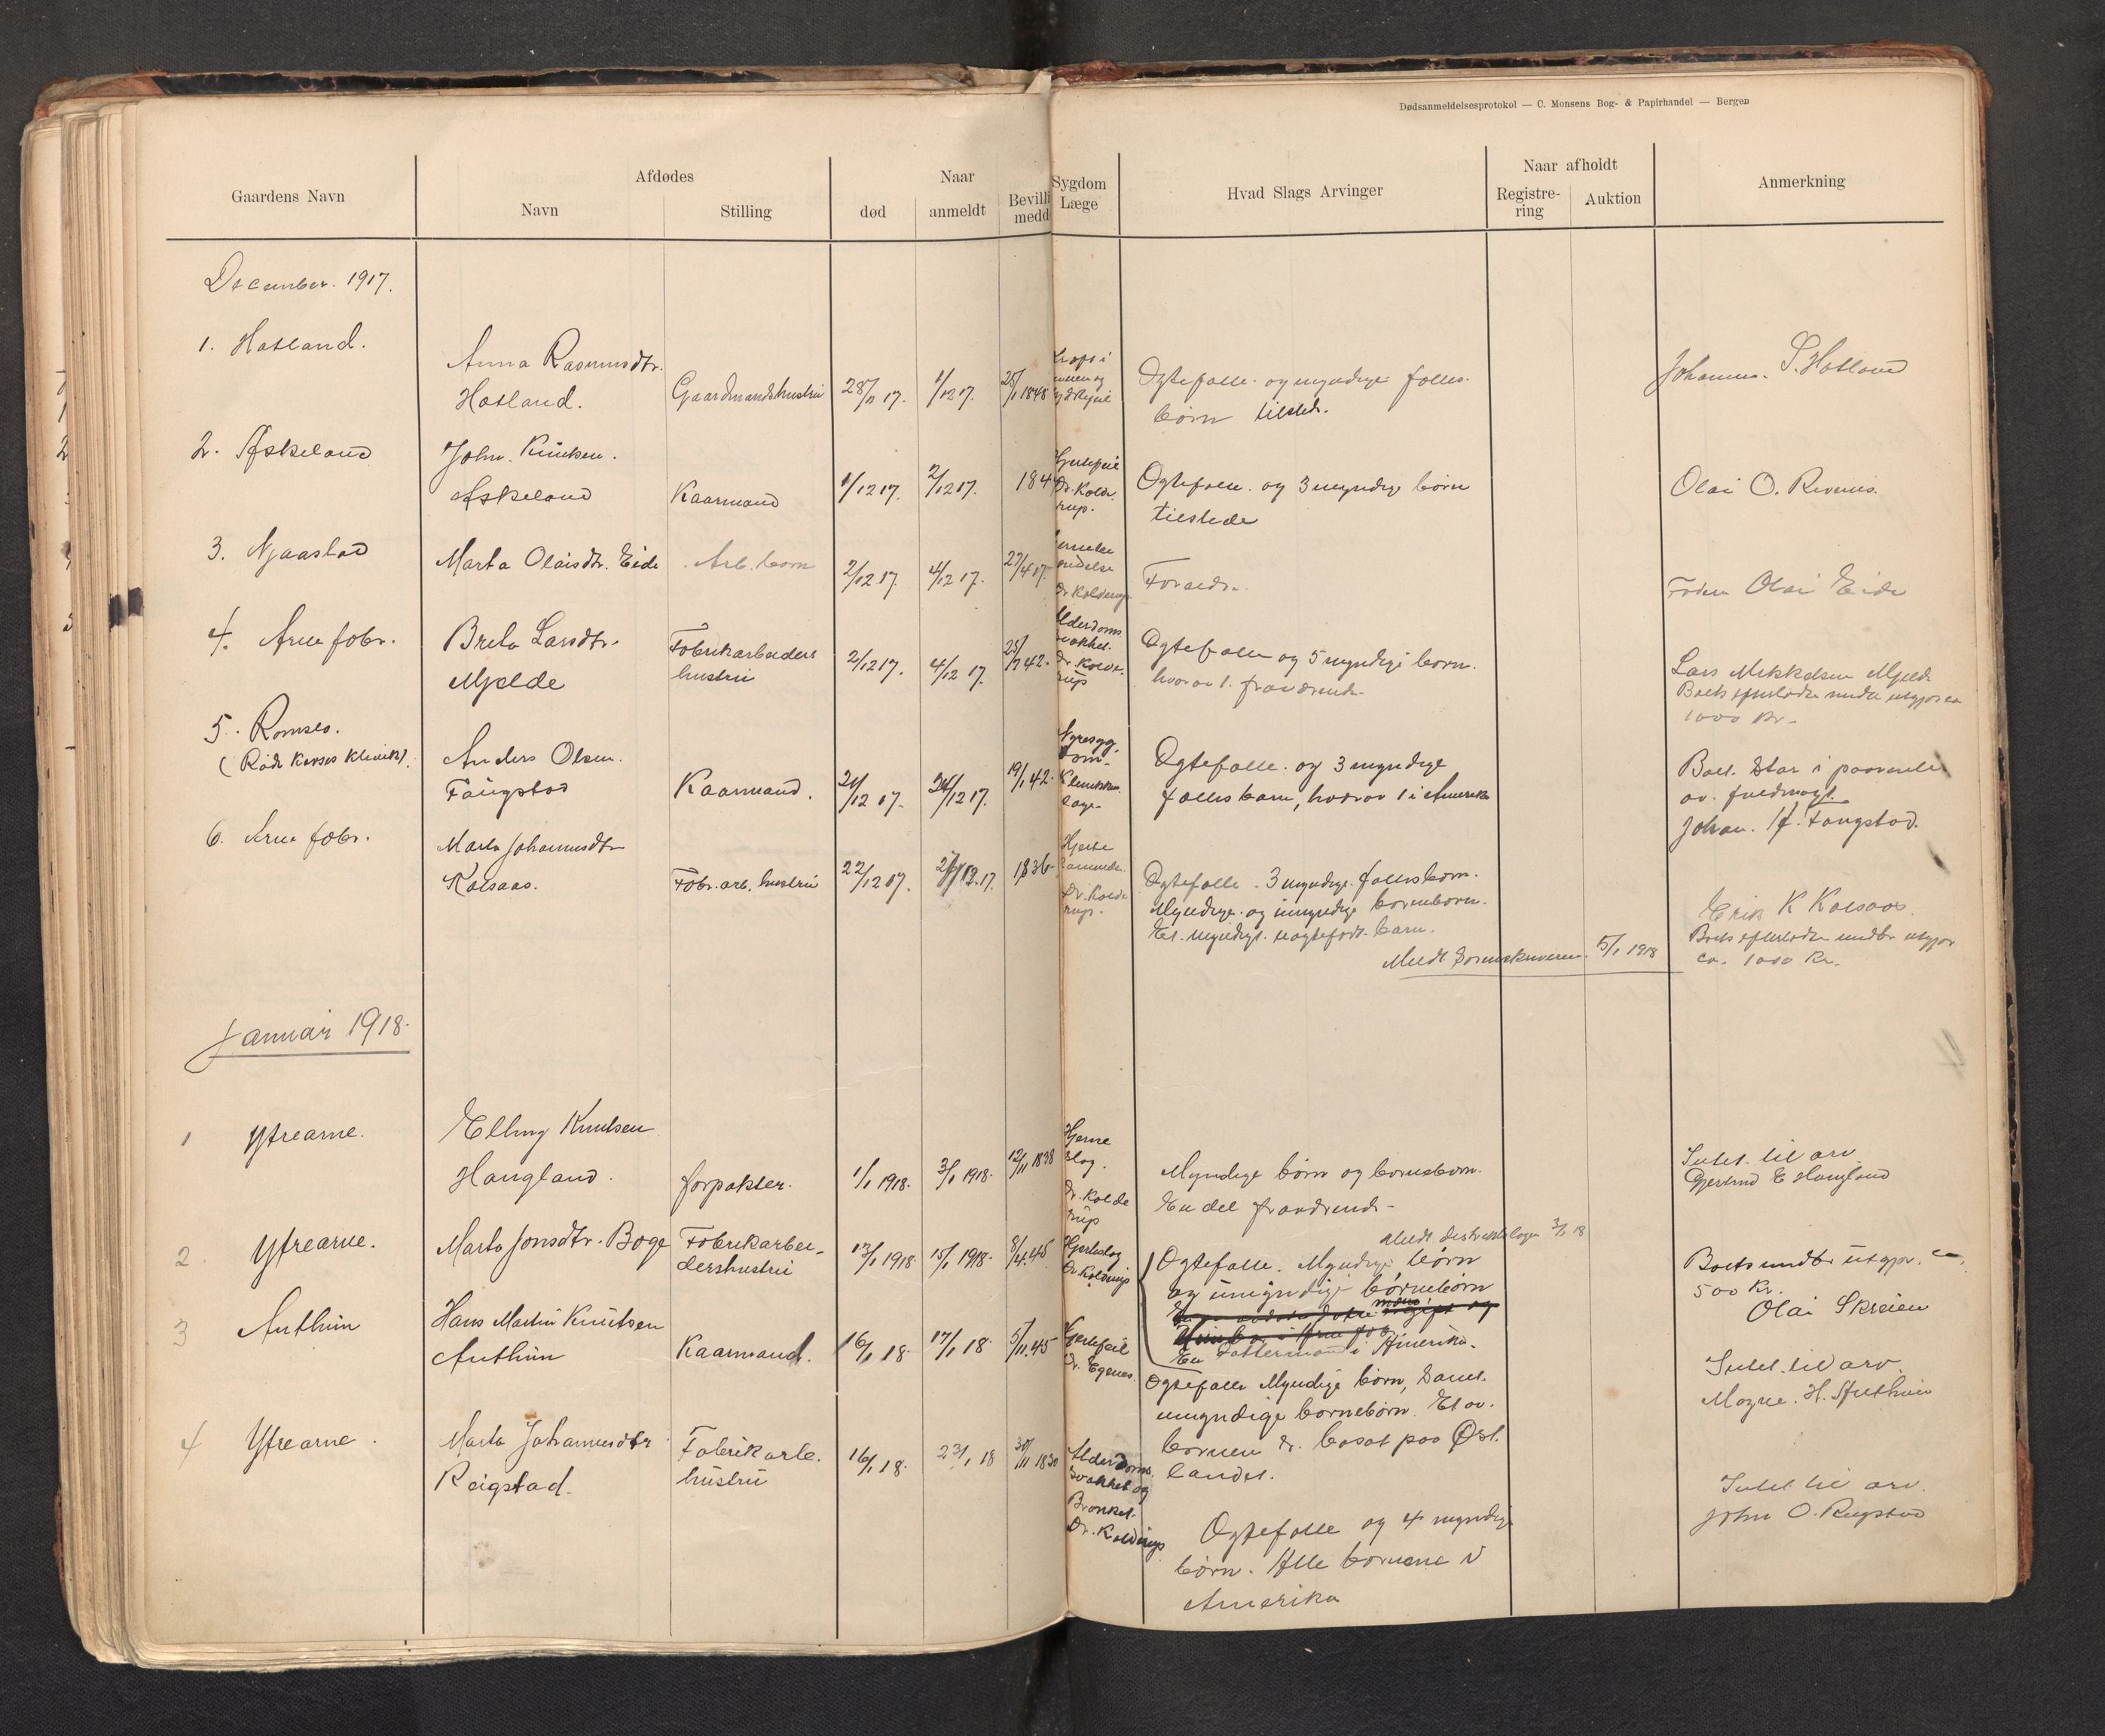 Dødsanmeldelsesprotokol — C. Monsens Bog- & Papirhandel — Bergen
Gaardens Navn
Afdødes
Navn
Stilling
Naar
død
anmeldt
Bevilli
medd
Sygdom
Læge
Hvad Slags Arvinger
Naar afholdt
Registre-
ring
Auktion
Anmerkning
December. 1917.
1. Hatland.
Anna Rasmusdtr.
Hatland.
Gaardmandshustru
28/11 17.
1/12 17.
25/1 1848
Ogtefælle. og myndige fælles.
børn tilsted.
Johannes. S. Hatland
2. Askeland
John. Knutsen.
Askeland
Kaarmand
1/12 17.
2/12 17.
184
Hjertefeil
Dr. Kold.
rup.
Ogtefælle. og 3 myndige børn
tilstede
Olai O. Revnes.
3. Njaastad
Marta Olaisdtr. Eide
Arb. barn
2/12 17.
4/12 17.
27/4 17.
Dr Kolderup
Foreldr.
Faderen Olai Eide
4. Arne fabr.
Brita Larsdtr.
Mjelde
Fabrikarbeiders
hustru
2/12 17.
4/12 17.
25/7 42.
Alderdoms
svakhet.
Dr. Kolde.
rup
Ogtefælle og 5 myndige børn.
hvorav 1. fraværende.
Lars Mikkelsen Mjelde
Boets efterladte midler utgjør ca
1000 Kr.
5. Romslo.
(Røde Korses Klinik).
Anders Olsen.
Faugstad
Kaarmand.
21/12 17.
24/12 17.
19/1 42.
Nyresyg.
dom.
Klinikkens
læge.
Ogtefælle. og 3 myndige
fælles barn, hvorav 1 i Amerika
Boet. Star i
av. fuldmagt.
Johan. A. Faugstad.
6. Arne fabr.
Marta Johannesdtr
Kalsaas.
Fabr. arb. hustru
22/12 17.
27/12.17.
1836
Hjerte
Dr. Kolde
rup.
Ogtefælle. 3 myndige. fællesbørn.
Myndige. og umyndige børnebørn.
Et. myndigt. uægtefødt. barn.
Meldt Sorenskriveren. 5/1 1918
Erik K Kalsaas.
Boets efterladte midler utgjør
ca. 1000 Kr.
Januar 1918.
1 Ytrearne.
Elling Knutsen
Haugland.
forpakter.
1/1 1918.
3/1 1918.
12/11 1838
Hjerne
slag.
Dr. Kolde
rup
Myndige børn og børnebørn.
En del fraværende.
Intet. til arv.
Gjertrud E Haugland
2 Ytrearne.
Marta Jonsdtr. Boge
Fabrikarbei-
dershustru
13/1 1918.
15/1 1918.
8/4.45
Hjerteslag
Dr Kolderup
Meldt destriktslægen 3/1 18
Ogtefælle. Myndige børn
og umyndige børnebørn
En Dattermand i Amerika.
Boets midler utgjør. ca.
500 Kr.
Olai Skreien
3 Anthun
Hans Martin Knutsen
Anthun
Kaarmand.
16/1 18.
17/1 18.
5/11.45
Hjertefeil
Dr. Egenes.
Ogtefælle Myndige børn, samt.
umyndige børnebørn. Et av.
børnene er. bosat paa Øst.
landet.
Intet. til arv.
Mogne. H. Anthun
4 Ytrearne.
Marta Johannesdtr
Reigstad.
Fabrikarb.
hustru
16/1 18.
23/1 18
30/11 1830
Alderdoms
svakhet og
Bronket.
Dr. Kolderup
Ogtefælle og 4 myndige
børn. Alle børnene i
Amerika
Intet til arv.
John O. Reigstad